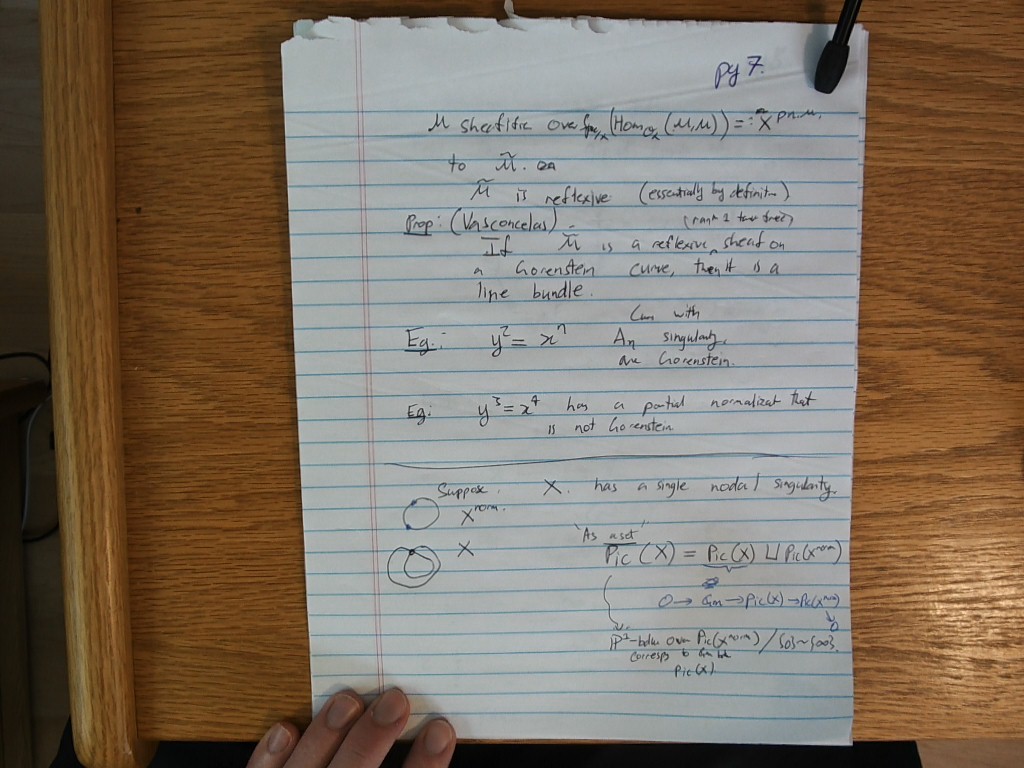 pg 7.
M sheafific over Spec/X (Hom_{O_X}(M,M)) =: X̃^{p.n.M.}
to M̃. on
M̃ is reflexive (essentially by definitn)
Prop: (Vasconcelas) (rank 1 tor free)
If M̃ is a reflexive sheaf on
a Gorenstein curve, then it is a
line bundle.
Curv with
Eg.: y² = xⁿ Aₙ singularity.
are Gorenstein.
Eg: y³ = x⁴ has a partial normalizat that
is not Gorenstein
Suppose. X. has a single nodal singularity.
X^{norm.}
"As a set"
X Pic(X) = Pic(X) ⊔ Pic(X^{norm})
0 → Gm → Pic(X) → Pic(X^{norm})
↓
0
P¹-bdle over Pic(X^{norm}) / {0} ~ {∞}.
corresp to Gm bdle
Pic(X)